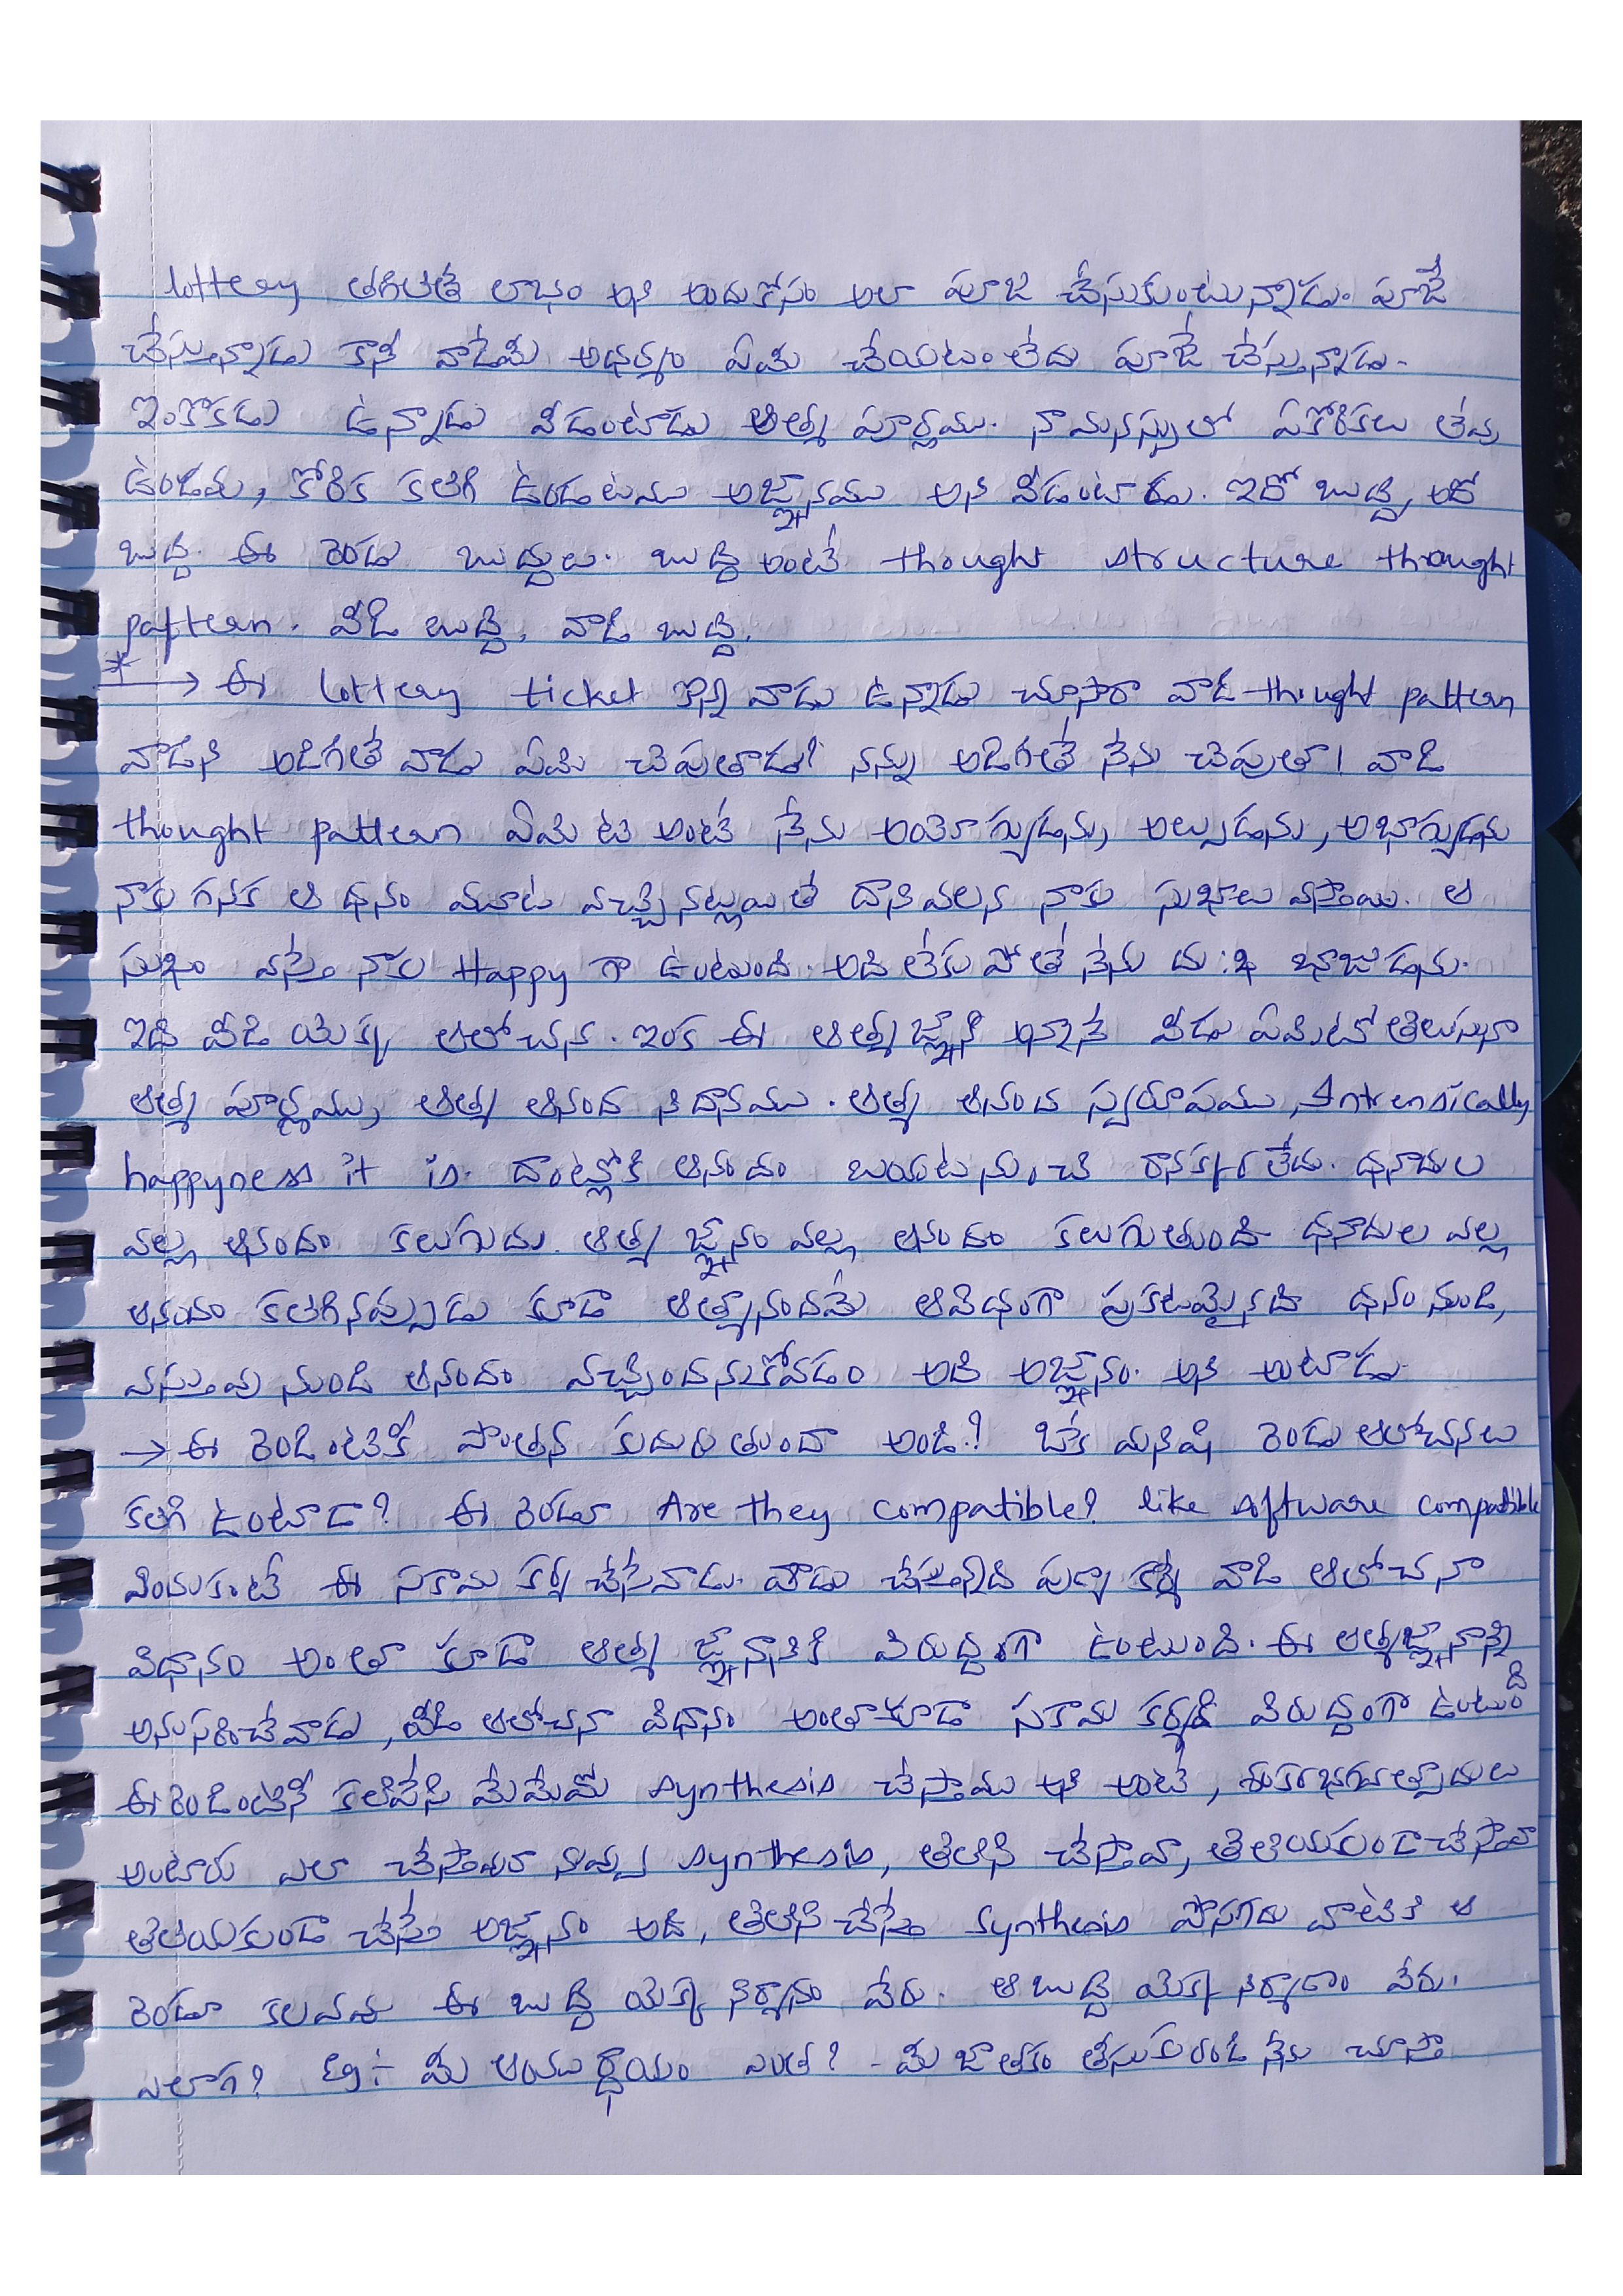 lottery తగిలితే లాభం అని అందుకోసం అలా పూజ చేసుకుంటున్నాడు. పూజే
చేస్తున్నాడు కానీ వాడేమీ అధర్మం ఏమి చేయటం లేదు పూజే చేస్తున్నాడు.
ఇంకొకడు ఉన్నాడు వీడంటాడు ఆత్మ పూర్ణము. నామనస్సులో ఏకోరికలు లేవు
ఉండవు, కోరిక కలిగి ఉండటము అజ్ఞానము అని వీడంటాడు. ఇదో బుద్ధి, అదో
బుద్ధి. ఈ రెండు బుద్ధులు. బుద్ధి అంటే thought structure thought
pattern. వీడి బుద్ధి, వాడి బుద్ధి.
* → ఈ lottery ticket కొన్న వాడు ఉన్నాడు చూసారా వాడి thought pattern
వాడిని అడిగితే వాడు ఏమి చెపుతాడు? నన్ను అడిగితే నేను చెపుతా। వాడి
thought pattern ఏమిటి అంటే నేను అయోగ్యుడను, అల్పుడను, అభాగ్యుడను
నాకు గనక ఆ ధనం మూట వచ్చినట్లయితే దానివలన నాకు సుఖాలు వస్తాయి. ఆ
సుఖం వస్తే నాకు Happy గా ఉంటుంది. అది లేకపోతే నేను దు:ఖ భాజుడను.
ఇది వీడి యొక్క ఆలోచన. ఇంక ఈ ఆత్మజ్ఞాని అన్నానే వీడు ఏమిటో తెలుసునా
ఆత్మ పూర్ణము, ఆత్మ ఆనంద నిదానము. ఆత్మ ఆనంద స్వరూపము, Intrensically
happyness it is. దాంట్లోకి ఆనందం బయటనుంచి రానక్కర్లేదు. ధనాదుల
వల్ల ఆనందం కలుగదు. ఆత్మ జ్ఞానం వల్ల ఆనందం కలుగుతుంది ధనాదుల వల్ల
ఆనందం కలిగినప్పుడు కూడా ఆత్మానందమే ఆవిధంగా ప్రకటమైనది ధనం నుండి,
వస్తువు నుండి ఆనందం వచ్చిందనుకోవడం అది అజ్ఞానం. అని అంటాడు.
→ ఈ రెండింటికీ పొంతన కుదురుతుందా అండి? ఒక మనిషి రెండు ఆలోచనలు
కలిగి ఉంటాడా? ఈ రెండూ Are they compatible? like software compatible
ఎందుకంటే ఈ సకామ కర్మ చేసేవాడు. వాడు చేస్తున్నది పుణ్య కర్మే వాడి ఆలోచనా
విధానం అంతా కూడా ఆత్మ జ్ఞానానికి విరుద్ధంగా ఉంటుంది. ఈ ఆత్మజ్ఞానాన్ని
అనుసరించేవాడు, వీడి ఆలోచనా విధానం అంతాకూడా సకామ కర్మకి విరుద్ధంగా ఉంటుంది
ఈ రెండింటినీ కలిపేసి మేమేమో synthesis చేస్తాము అని అంటే, శంకరభగవత్పాదులు
అంటారు ఎలా చేస్తావురా నువ్వు synthesis, తెలిసి చేస్తావా, తెలియకుండాచేస్తావా
తెలియకుండా చేస్తే అజ్ఞానం అది, తెలిసి చేస్తే Synthesis పొసగదు వాటికి ఆ
రెండూ కలవవు ఈ బుద్ధి యొక్క నిర్మాణం వేరు. ఆ బుద్ధి యొక్క నిర్మాణం వేరు.
ఎలాగ? Eg:- మీ ఆయుర్ధాయం ఎంత? - మీ జాతకం తీసుకురండి నేను చూస్తా